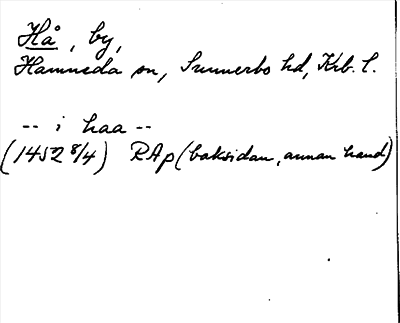 Hå, by,
Hamneda sn, Sunnerbo hd, Krb. l.
-- i haa --
(1452 8/4) RAp (baksidan, annan hand)